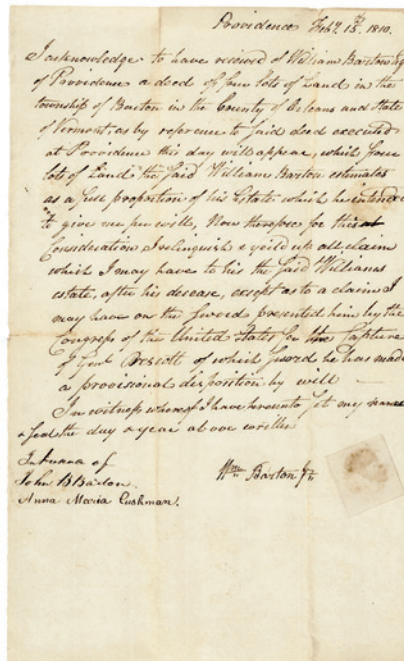 Providence Feby. 15th. 1810.
I acknowledge to have received of William Barton Esq
of Providence a deed of four lots of Land in the
township of Barton in the County of Orleans and State
of Vermont, as by reference to said deed executed
at Providence this day will appear, which four
lots of Land the said William Barton estimates
as a full proportion of his Estate which he intended
to give me per will, Now therefore for this
Consideration I relinquish & yeild up all claim
which I may have to his the said Williams
estate, after his decease, except as to a claim I
may have on the Sword presented him by the
Congress of the United States for the Capture
of Genl Prescott of which sword he has made
a provisional disposition by will
In witness whereof I have hereunto set my name
& seal the day & year above written
of
John B Barton. Wm Barton Jr
Anna Maria Cushman.